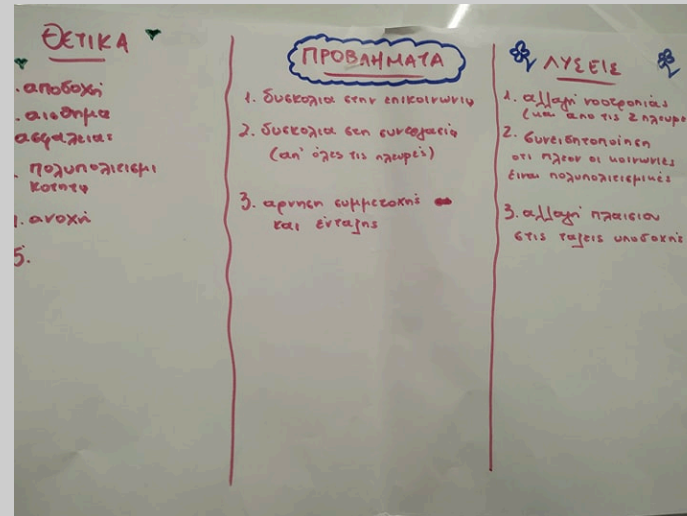 ΘΕΤΙΚΑ
. αποδοχή
. αισθημα
ασφάλειας
. πολυπολιτισμι
κοτητα
. ανοχή
5.
ΠΡΟΒΛΗΜΑΤΑ
1. δυσκολια στην επικοινωνια
2. δυσκολια στη συνεργασια
(απ' όλες τις πλευρές)
3. αρνηση συμμετοχής
και ένταξης
ΛΥΣΕΙΣ
1. αλλαγή νοοτροπιας
(και απο τις 2 πλευρε
2. συνειδητοποίηση
οτι πλεον οι κοινωνιες
ειναι πολυπολιτισμικές
3. αλλαγή πλαισιου
στις ταξεις υποδοχής